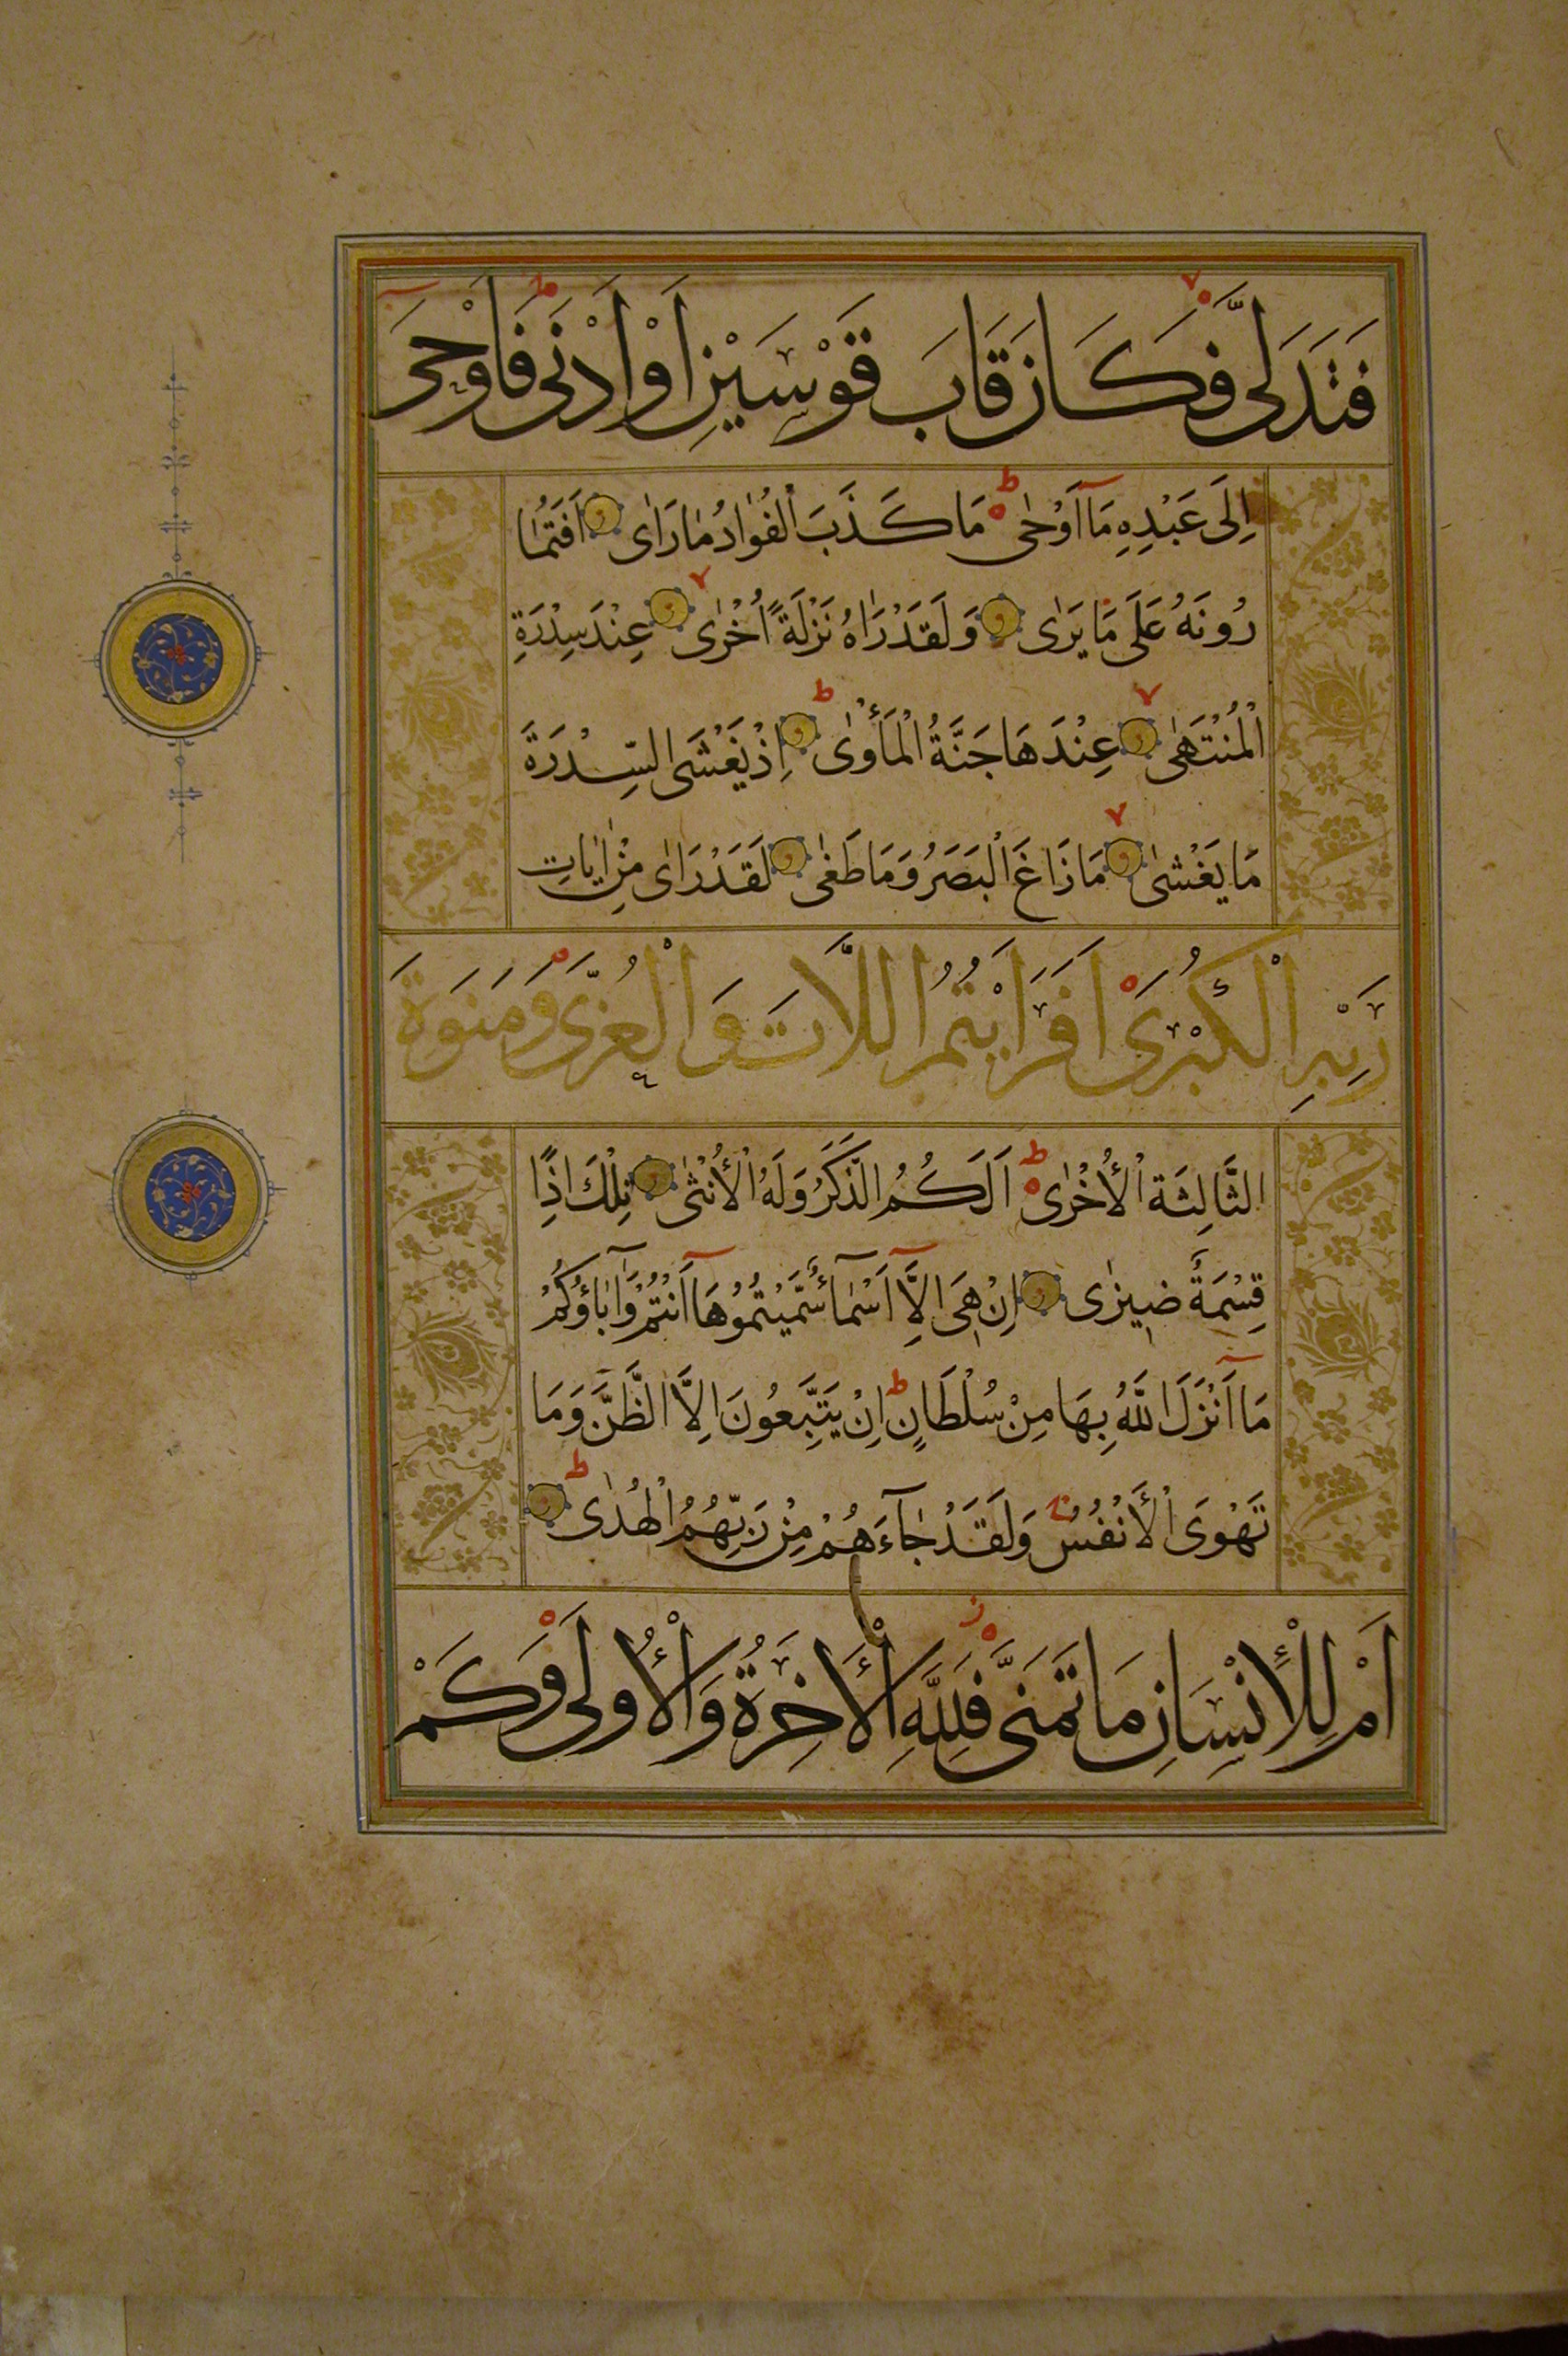 فَتَدَلَّىٰ فَكَانَ قَابَ قَوْسَيْنِ اَوْ اَدْنَى فَاَوْحَى
اِلَى عَبْدِهِ مَآ اَوْحٰى مَا كَذَبَ الْفُؤٰادُ مٰا رَاٰى اَفَتُمٰا
رُونَهُ عَلَى مَا يَرٰى وَلَقَدْ رَاٰهُ نَزْلَةً اُخْرٰى عِنْدَ سِدْرَةِ
الْمُنْتَهٰى عِنْدَهَا جَنَّةُ الْمَأْوٰى اِذْ يَغْشَى السِّدْرَةَ
مَا يَغْشٰى مَا زَاغَ الْبَصَرُ وَمَا طَغٰى لَقَدْ رَاٰى مِنْ اٰيٰاتِ
رَبِّهِ الْكُبْرَى اَفَرَاَيْتُمُ اللَّاتَ وَالْعُزَّى وَمَنَوةَ
الثَّالِثَةَ الْأُخْرٰى اَلَكُمُ الذَّكَرُ وَلَهُ الْأُنْثٰى تِلْكَ اِذًا
قِسْمَةٌ ضِيزٰى اِنْ هِىَ اِلَّآ اَسْمٰآءٌ سَمَّيْتُمُوْهَآ اَنْتُمْ وَاٰبٰاؤُكُمْ
مَآ اَنْزَلَ اللّٰهُ بِهَا مِنْ سُلْطَانٍ اِنْ يَتَّبِعُونَ اِلَّا الظَّنَّ وَمَا
تَهْوَى الْأَنْفُسُ وَلَقَدْ جٰآءَهُمْ مِنْ رَبِّهِمُ الْهُدٰى
اَمْ لِلْأِنْسَانِ مَا تَمَنَّى فَلِلَّهِ الْأَاخِرَةُ وَالْأُولَى وَكَمْ